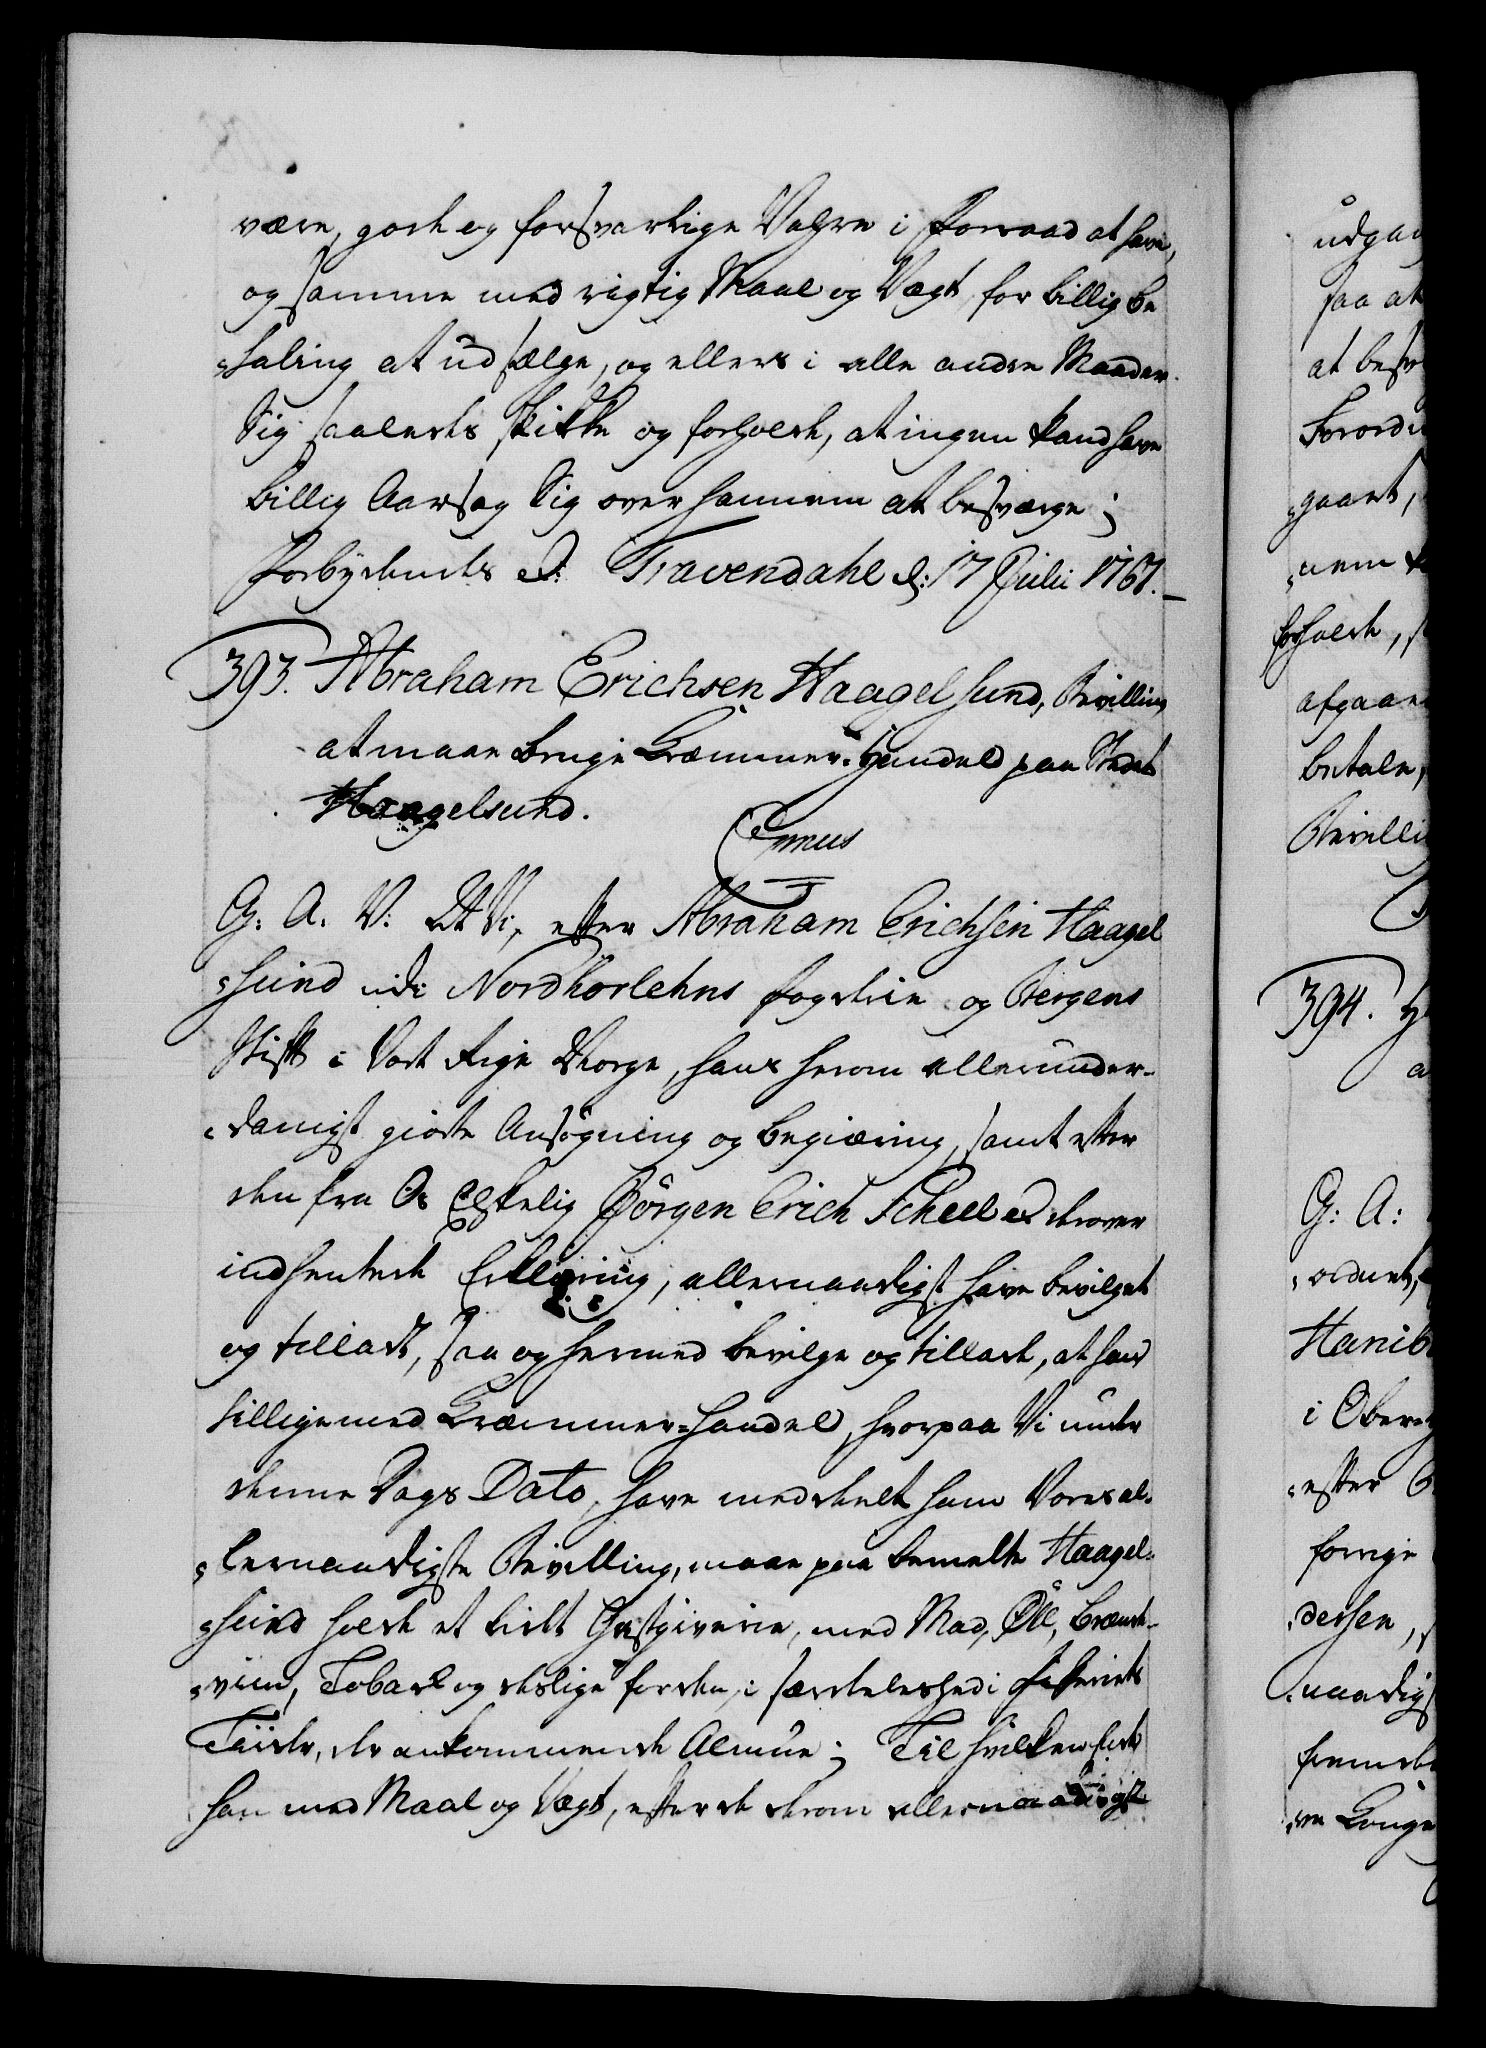 være, gode og forsvarlige Vahre i Forraad at have,
og samme med rigtig Maal og Vægt, for billig be
„taling at udsælge, og ellers i alle andre Maader
Sig saaledes skikke og forholde, at ingen kand have
billig Aarsag Sig over hannem at besværge;
Forbydendes &: Travendahl d: 17 Julii 1767.
393. Abraham Erichsen Haagelsund, Bevilling
at maae bruge Cræmmer-Handel paa Stedet
Haagelsund.
G: A. V: At Vi, efter Abraham Erichsen Haagel
„sund udi Nordhörlehns Fogderie og Bergens
Stift i Vort Rige Norge, hans herom allerunder-
„danigst giorte Ansøgning og begiæring, samt efter
den fra Os Elskelig Jörgen Erich Scheel derover
indhentede Erklæring, allernaadigst have bevilget
og tilladt, saa og hermed bevilge og tillade, at han
tilligemed Cræmmer-Handel, hvorpaa Vi under
denne Dags Dato, have meddeelt ham Vores al-
„lernaadigste Bevilling, maae paa bemelte Haagel-
„sund holde et lidet Giestgiverie, med Mad, Öll, brænde-
„viin, Toback og deslige for den, i særdeleshed i Fiskeriets
Tiider, der ankommende Almue; Til hvilken Ende
han med Maal og Vægt, efter de derom allernaadigst
udgan
saa at
at besv
Forordn
„gaaet,
„nem
forholde,
afgaae
betale,
Bevilli
394. H
G: A:
„ordnet,
Hanib
i Ober
„efter
forrige
„dersen,
„naadigs
fremde
„ne Konge